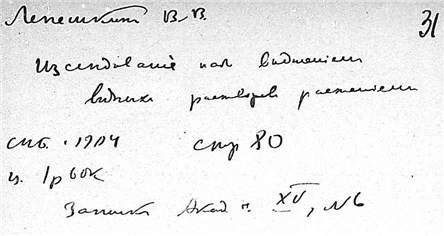 Лепешкин В.В. 31
Изследованіе над выделением
водных растворов растениями
СПб. 1904 стр 80
ц. 1р 60к
Записки Акад. н. XV, №6